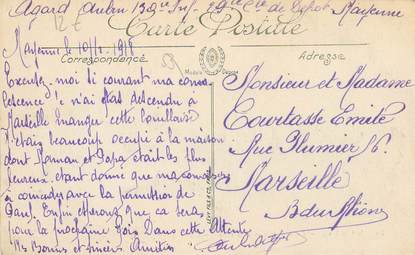 Agard Aubin 139e Inf. 29e Cie de Dépôt Mayenne
Carte Postale
Correspondance
Adresse
Mayenne le 10/12 1918
Excuse moi si courant ma conva
lescence je n'ai pas descendu à
Marseille manger cette bouillaisse
J'étais beaucoup occupé à la maison
dont Maman et Papa était les plus
heureux. étant donné que ma convales
à coincider avec la permission de
Paul. Enfin esperons que ca sera
pour la prochaine fois Dans cette Attente
Mes Bonnes et sincères Amitiés
Monsieur et Madame
Courtasse Emile
Rue Plumier 36
Marseille
B du Rhône